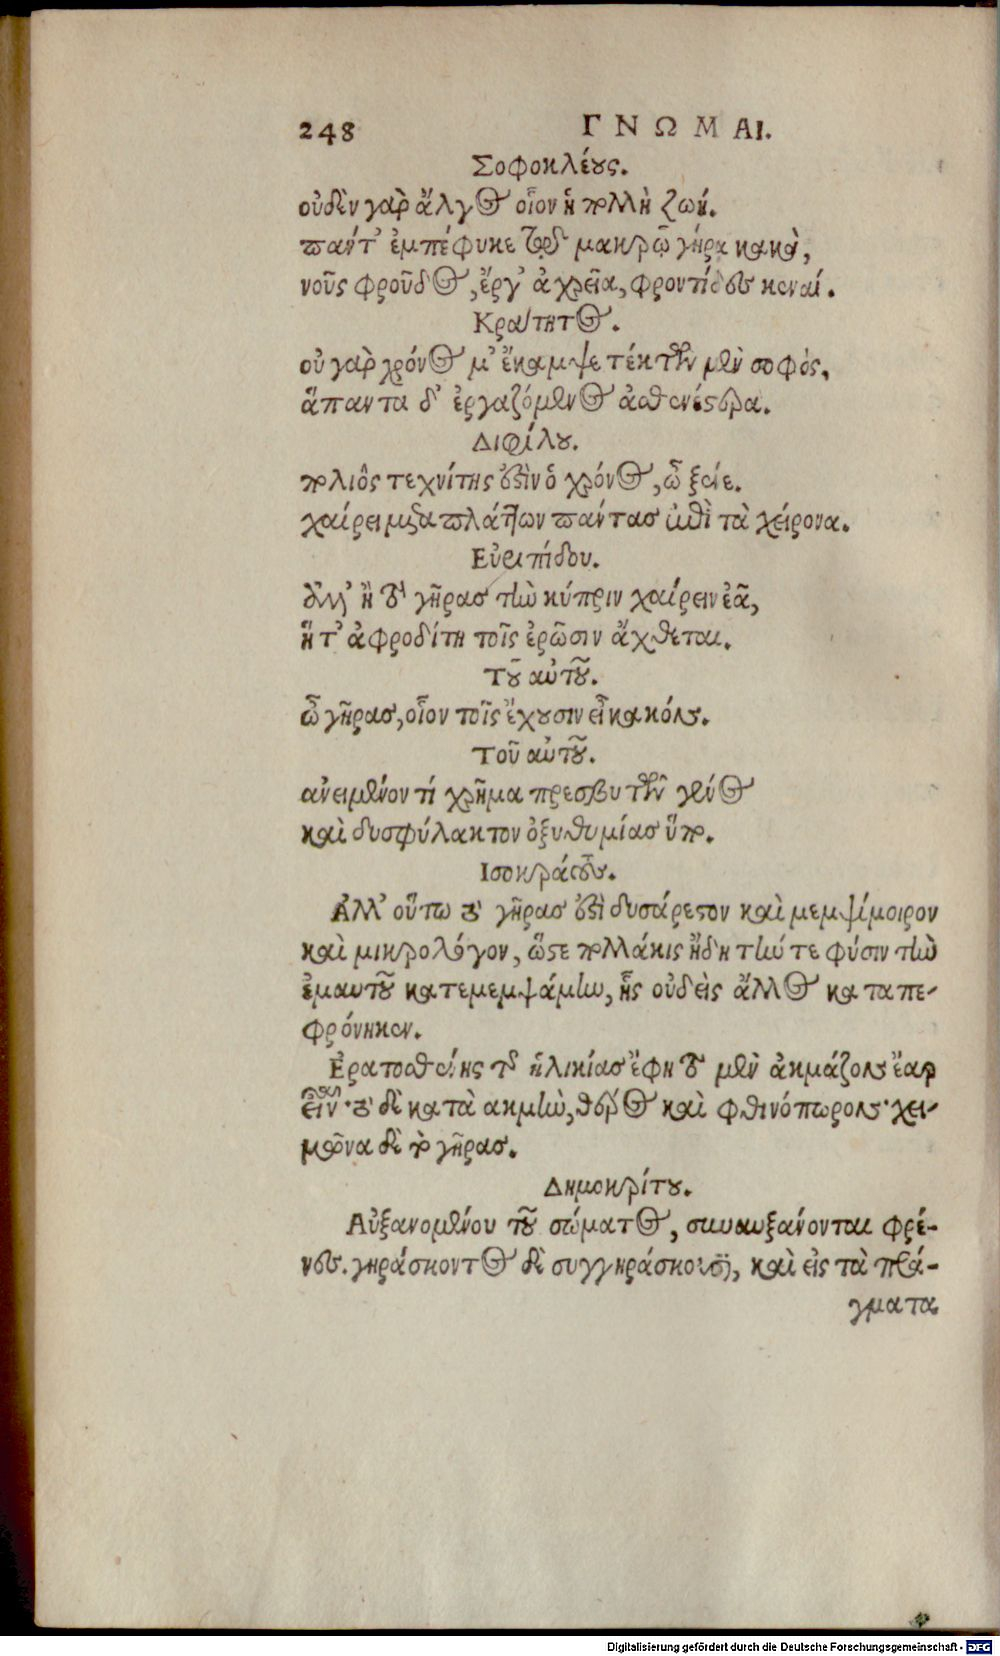 248 ΓΝΩΜΑΙ.
Σοφοκλέους.
οὐδὲν γὰρ ἄλγος οἷον ἡ πολλὴ ζωή.
πάντ' ἐμπέφυκε τῷδε μακρῷ γήρᾳ κακὰ,
νοῦς φροῦδος, ἔργ' ἀχρεῖα, φροντίδες κεναί.
Κράτητος.
οὐ γὰρ χρόνος μ' ἔκαμψε τέκτων μὲν σοφὸς,
ἅπαντα δ' ἐργαζόμενος ἀσθενέστερα.
Διφίλου.
πολιὸς τεχνίτης ἐστὶν ὁ χρόνος, ὦ ξένε.
χαίρει μεταπλάττων πάντας ἐπὶ τὰ χείρονα.
Εὐριπίδου.
ἀλλ' ἢ τὸ γῆρας τὴν κύπριν χαίρειν ἐᾷ,
ἥ τ' ἀφροδίτη τοῖς ἐρῶσιν ἄχθεται.
Τοῦ αὐτοῦ.
ὦ γῆρας, οἷον τοῖς ἔχουσιν εἶ κακόν.
Τοῦ αὐτοῦ.
ἀνειμένον τί χρῆμα πρεσβυτῶν γένος
καὶ δυσφύλακτον ὀξυθυμίας ὕπο.
Ισοκράτους.
Ἀλλ' οὕτω τὸ γῆρας ἐστὶ δυσάρεστον καὶ μεμψίμοιρον
καὶ μικρολόγον, ὥστε πολλάκις ἤδη τήν τε φύσιν τὴν
ἐμαυτοῦ κατεμεμψάμην, ἧς οὐδεὶς ἄλλος καταπε-
φρόνηκεν.
Ἐρατοσθένης τῆς ἡλικίας ἔφη τὸ μὲν ἀκμάζον ἔαρ
εἶναι· τὸ δὲ κατὰ ακμὴν, θέρος καὶ φθινόπωρον· χει-
μῶνα δὲ τὸ γῆρας.
Δημοκρίτου.
Αὐξανομένου τοῦ σώματος, συναυξάνονται φρέ-
νες. γηράσκοντος δὲ συγγηράσκουσι, καὶ εἰς τὰ πρά-
γματα
Digitalisierung gefördert durch die Deutsche Forschungsgemeinschaft - DFG